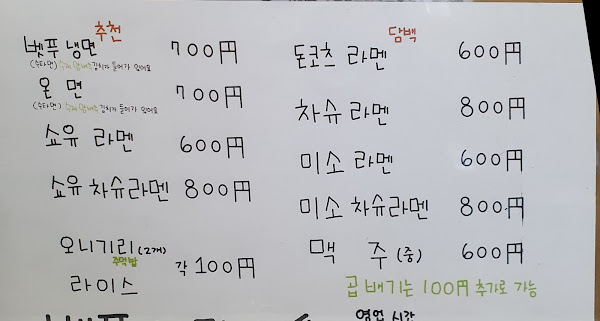 추천
벳푸 냉면 700円
(수타면) 수제 양배추김치가 들어가 있어요
온 면 700円
(수타면) 수제 양배추김치가 들어가 있어요
쇼유 라멘 600円
쇼유 차슈라멘 800円
오니기리 (2개)
주먹밥
라이스
각 100円
담백
돈코츠 라멘 600円
차슈 라멘 800円
미소 라멘 600円
미소 차슈라멘 800円
맥 주 (중) 600円
곱배기는 100円 추가로 가능
영업 시간